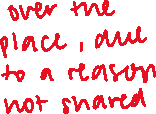 over the
place, due
to a reason
not shared